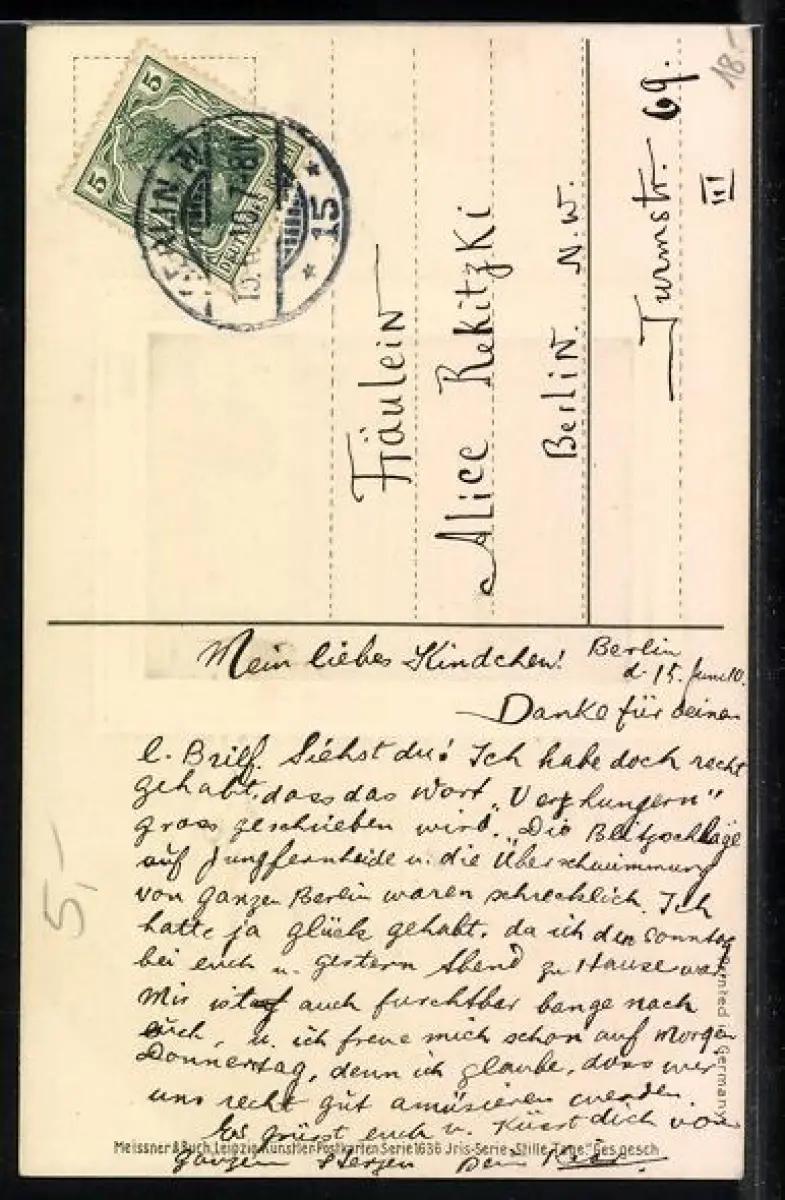 5
5
BERLIN
15
18.-
Fräulein
Alice Rekitzki
Berlin. N.W.
Turmstr. 69.
III
Mein liebes Kindchen!
Berlin
d. 15. Juni 10.
Danke für deinen
l. Brief. Siehst du! Ich habe doch recht
gehabt, dass das Wort „Verhungern"
gross geschrieben wird. Die Blitzschläge
auf Jungfernheide u. die Überschwemmung
von ganzen Berlin waren schrecklich. Ich
hatte ja glück gehabt, da ich den Sonntag
bei euch u. gestern Abend zu Hause war
Mir ist auch furchtbar bange nach
euch, u. ich freue mich schon auf Morgen
Donnerstag, denn ich glaube, dass wir
uns recht gut amüsieren werden.
Es grüsst euch u. Küsst dich von
ganzem Herzen Dein
5,-
Printed in Germany
Meissner & Buch, Leipzig Künstler-Postkarten Serie 1636 Jris-Serie „Stille Tage." Ges. gesch